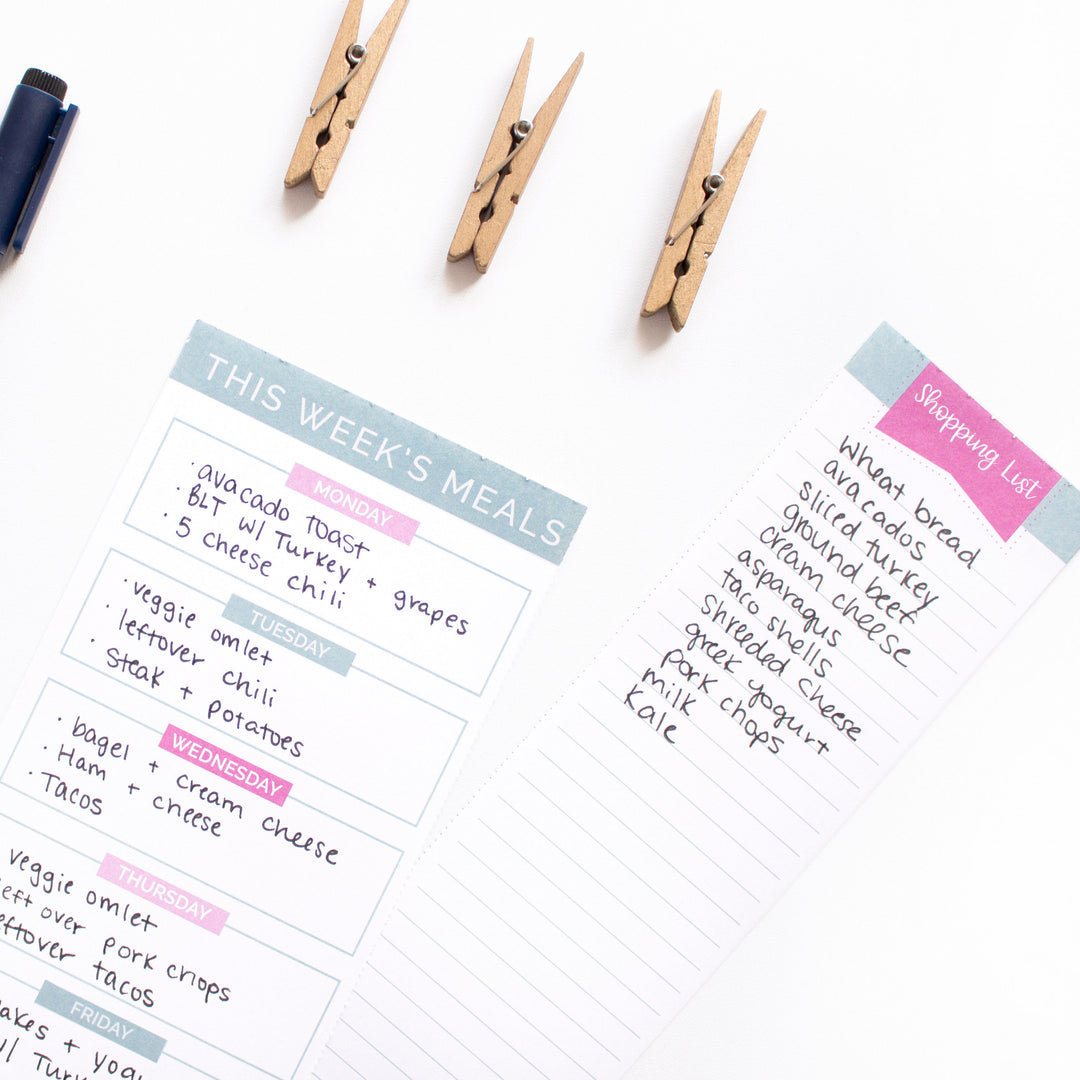 THIS WEEK'S MEALS
MONDAY
· avacado toast
· BLT w/ Turkey + grapes
· 5 cheese chili
TUESDAY
· veggie omlet
· leftover chili
· Steak + potatoes
WEDNESDAY
· bagel + cream cheese
· Ham + cheese
· Tacos
THURSDAY
veggie omlet
left over pork chops
leftover tacos
FRIDAY
Shopping List
wheat bread
avacados
sliced turkey
ground beef
cream cheese
asparagus
taco shells
shreeded cheese
greek yogurt
pork chops
milk
Kale